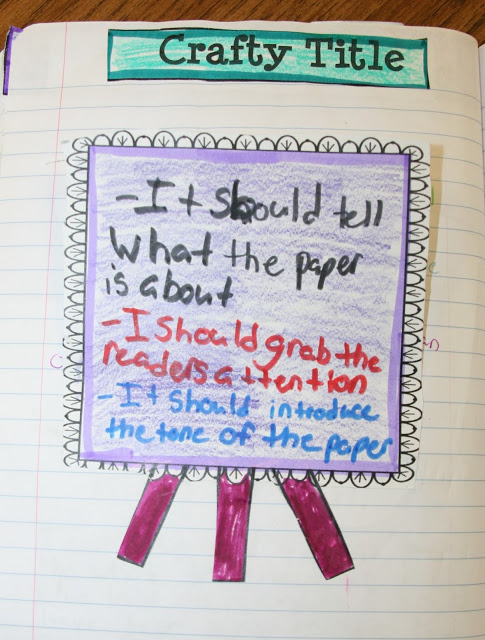 Crafty Title
-It should tell
What the paper
is about
-I should grab the
readers attention
-It should introduce
the tone of the paper